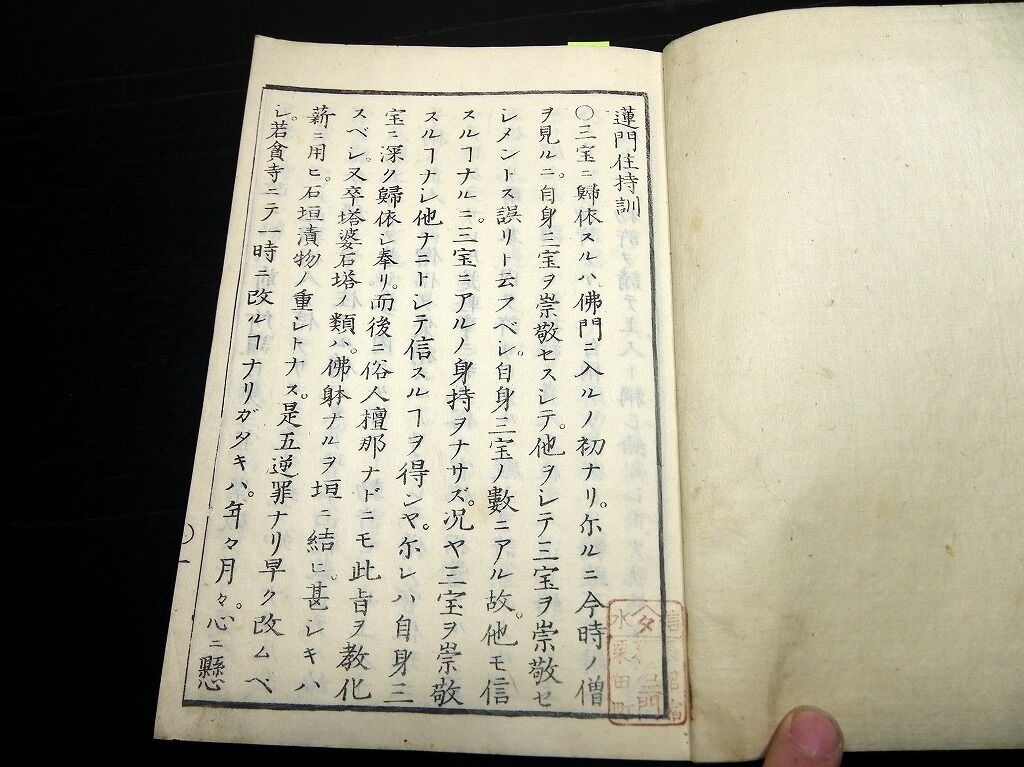 蓮門住持訓
○三宝ニ歸依スルハ佛門ニ入ルノ初ナリ。尓ルニ今時ノ僧
ヲ見ルニ。自身三宝ヲ崇敬セスシテ。他ヲシテ三宝ヲ崇敬セ
シメントス誤リト云スベシ。自身三宝ノ數ニアル故。他モ信
スルヿナルニ。三宝ニアルノ身持ヲナサズ。况ヤ三宝ヲ崇敬
スルヿナシ他ナニトシテ信スルヿヲ得ンヤ。尓レハ自身三
宝ニ深ク歸依シ奉リ。而後ニ俗人檀那ナドニモ此旨ヲ教化
スベシ。又卒塔婆石塔ノ類ハ。佛躰ナルヲ垣ニ結ヒ。甚シキハ
薪ニ用ヒ。石垣漬物ノ重シトナス。是五逆罪ナリ早ク改ムベ
シ。若貪寺ニテ一時ニ改ルヿナリガタキハ。年々月々。心ニ懸
一
水栗田町